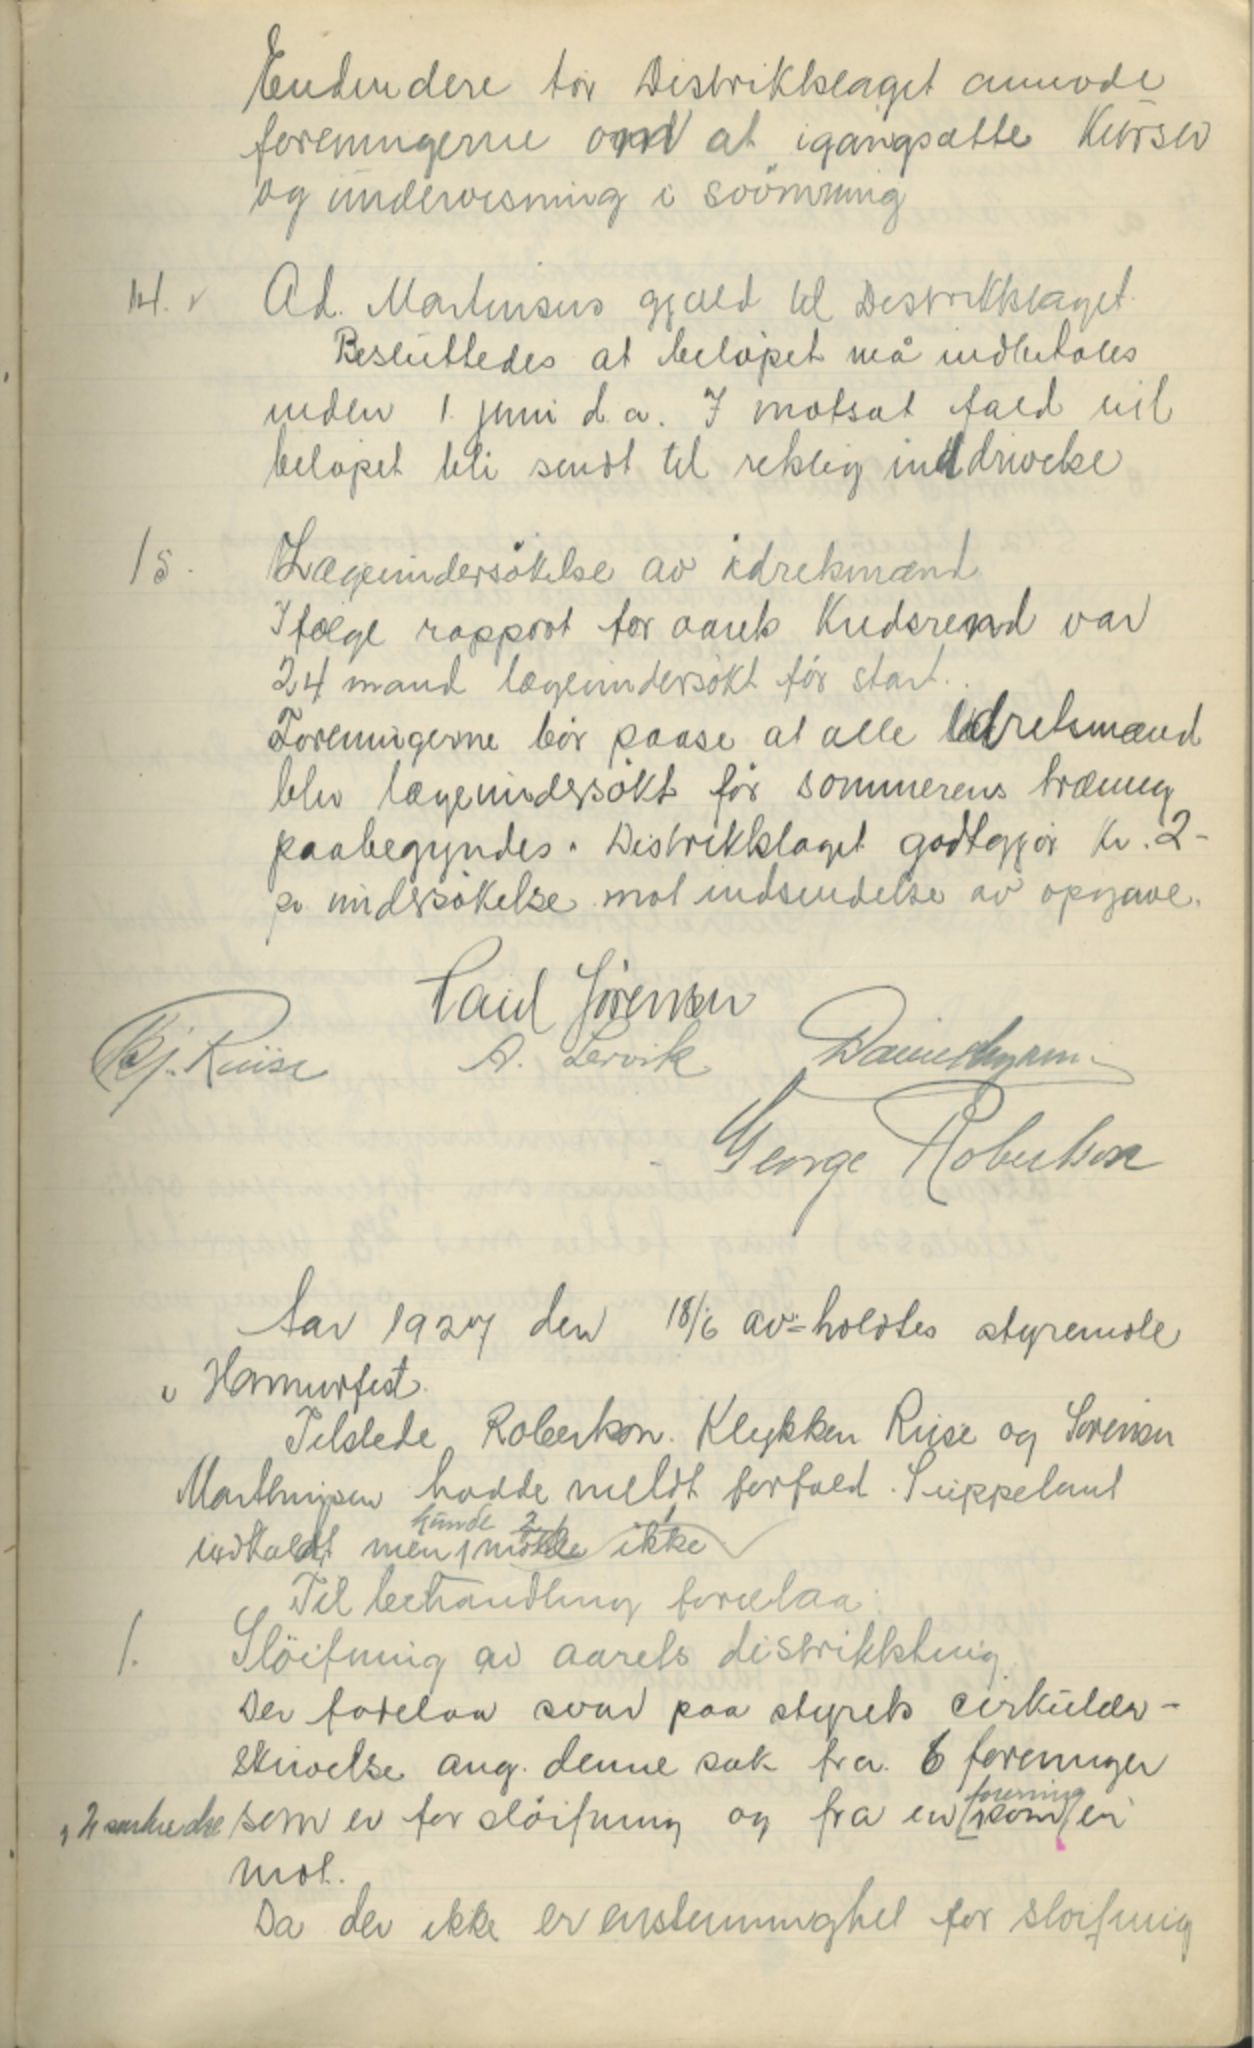 Endvidere tør Distriktslaget anmode
foreningerne om at igangsætte Kurser
og undervisning i svömning
14. Ad. Martinsens gjæld til Distriktslaget.
Besluttedes at beløpet må indbetales
inden 1. juni d.a. I motsat fald vil
beløpet bli sendt til retslig inddrivelse
15. Lægeundersökelse av idretsmænd
Ifølge rapport for aarets Kredsrend var
24 mand lægeundersøkt før start.
Foreningerne bør paase at alle idretsmænd
blir lægeundersøkt før sommerens træning
paabegyndes. Distriktslaget godtgjør kr. 2-
pr undersøkelse mot indsendelse av opgave.
Paul Sørensen
Bj. Riise A. Lervik
George Robertson
Aar 1927 den 18/6 av-holdtes styremøte
i Hammerfest.
Tilstede Robertson. Klykken Riise og Sørensen
Marthinsen hadde meldt forfald. Suppelant
kunde
indkaldt men møtte ikke
Til behandling forelaa:
1. Slöifning av aarets distriktsting
Der forelaa svar paa styrets cirkulær-
skrivelse ang. denne sak fra 6 foreninger
forening
som er for slöifning og fra en som er
mot.
Da der ikke er enstemmighet for sløifning